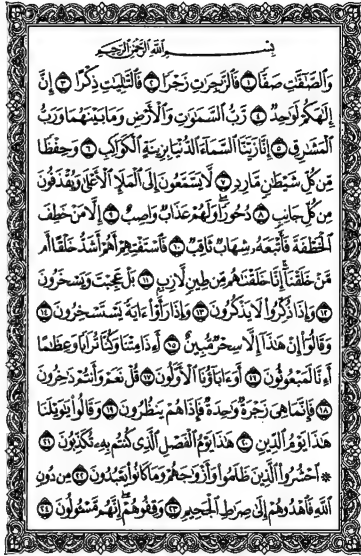 بِسْمِ اللَّهِ الرَّحْمَٰنِ الرَّحِيمِ
وَالصَّافَّاتِ صَفًّا ١ فَالزَّاجِرَاتِ زَجْرًا ٢ فَالتَّالِيَاتِ ذِكْرًا ٣ إِنَّ
إِلَٰهَكُمْ لَوَاحِدٌ ٤ رَّبُّ السَّمَاوَاتِ وَالْأَرْضِ وَمَا بَيْنَهُمَا وَرَبُّ
الْمَشَارِقِ ٥ إِنَّا زَيَّنَّا السَّمَاءَ الدُّنْيَا بِزِينَةٍ الْكَوَاكِبِ ٦ وَحِفْظًا
مِّن كُلِّ شَيْطَانٍ مَّارِدٍ ٧ لَّا يَسَّمَّعُونَ إِلَى الْمَلَإِ الْأَعْلَىٰ وَيُقْذَفُونَ
مِن كُلِّ جَانِبٍ ٨ دُحُورًا وَلَهُمْ عَذَابٌ وَاصِبٌ ٩ إِلَّا مَنْ خَطِفَ
الْخَطْفَةَ فَأَتْبَعَهُ شِهَابٌ ثَاقِبٌ ١٠ فَاسْتَفْتِهِمْ أَهُمْ أَشَدُّ خَلْقًا أَم
مَّنْ خَلَقْنَا إِنَّا خَلَقْنَاهُم مِّن طِينٍ لَّازِبٍ ١١ بَلْ عَجِبْتَ وَيَسْخَرُونَ
١٢ وَإِذَا ذُكِّرُوا لَا يَذْكُرُونَ ١٣ وَإِذَا رَأَوْا آيَةً يَسْتَسْخِرُونَ ١٤
وَقَالُوا إِنْ هَٰذَا إِلَّا سِحْرٌ مُّبِينٌ ١٥ أَءِذَا مِتْنَا وَكُنَّا تُرَابًا وَعِظَامًا
أَءِنَّا لَمَبْعُوثُونَ ١٦ أَوَءَابَاؤُنَا الْأَوَّلُونَ ١٧ قُلْ نَعَمْ وَأَنتُمْ دَاخِرُونَ
١٨ فَإِنَّمَا هِيَ زَجْرَةٌ وَاحِدَةٌ فَإِذَا هُمْ يَنظُرُونَ ١٩ وَقَالُوا يَا وَيْلَنَا
هَٰذَا يَوْمُ الدِّينِ ٢٠ هَٰذَا يَوْمُ الْفَصْلِ الَّذِي كُنتُم بِهِ تُكَذِّبُونَ ٢١
۞ احْشُرُوا الَّذِينَ ظَلَمُوا وَأَزْوَاجَهُمْ وَمَا كَانُوا يَعْبُدُونَ ٢٢ مِن دُونِ
اللَّهِ فَاهْدُوهُمْ إِلَىٰ صِرَاطِ الْجَحِيمِ ٢٣ وَقِفُوهُمْ إِنَّهُم مَّسْئُولُونَ ٢٤